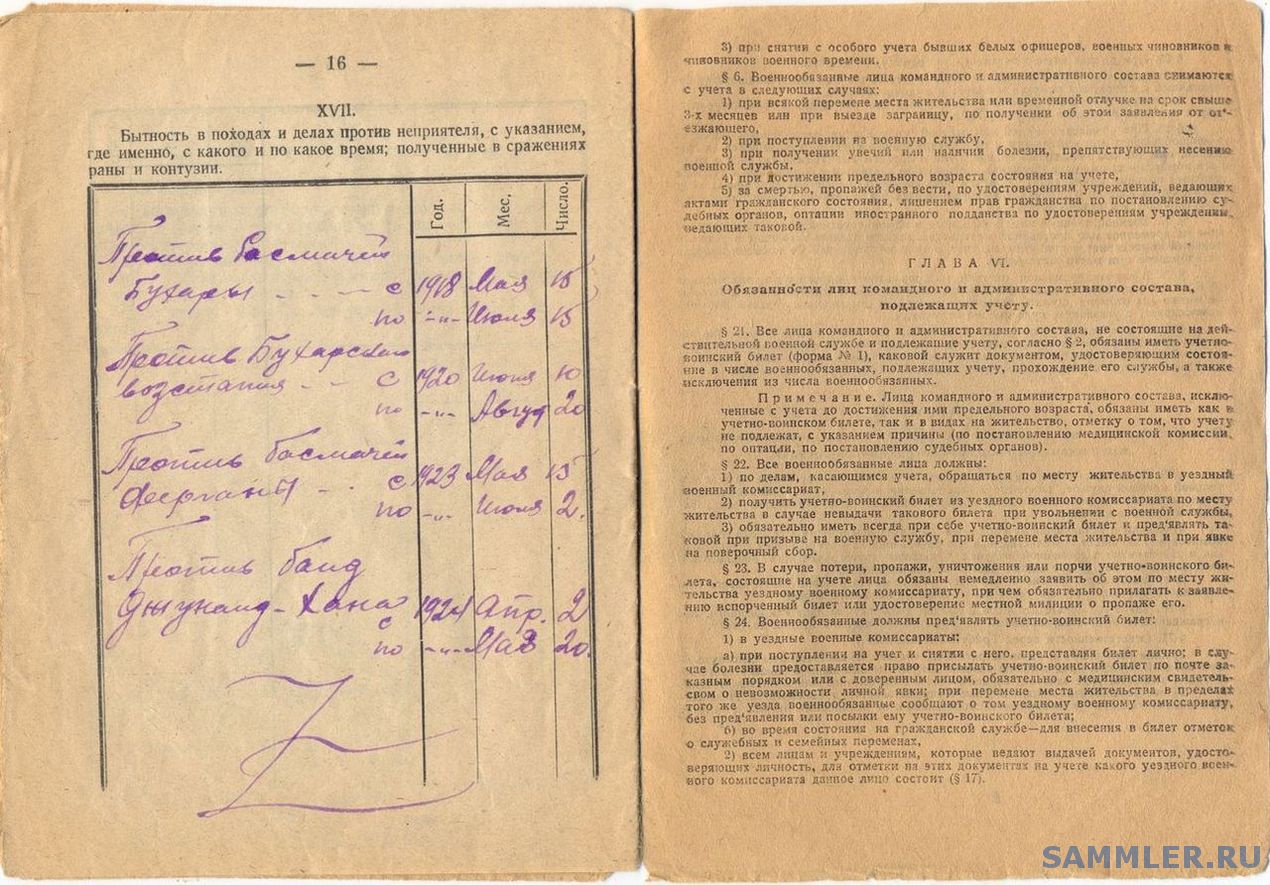 — 16 —
XVII.
Бытность в походах и делах против неприятеля, с указанием,
где именно, с какого и по какое время; полученные в сражениях
раны и контузии.
Год.
Мес.
Число.
Против басмачей
Бухары - - - с 1918 Мая 15
по -"- Июля 15
Против Бухарского
возстания - - с 1920 Июня 10
по -"- Авгус 20
Против басмачей
Ферганы - - с 1923 Мая 15
по -"- Июля 2.
Против банд
Джунаид-Хана 1924 Апр. 2
с
по -"- Мая 20.
3) при снятии с особого учета бывших белых офицеров, военных чиновников и
чиновников военного времени.
§ 6. Военнообязанные лица командного и административного состава снимаются
с учета в следующих случаях:
1) при всякой перемене места жительства или временной отлучке на срок свыше
3-х месяцев или при выезде заграницу, по получении об этом заявления от от'-
езжающего,
2) при поступлении из военную службу,
3) при получении увечий или наличии болезни, препятствующих несению
военной службы,
4) при достижении предельного возраста состояния на учете,
5) за смертью, пропажей без вести, по удостоверениям учреждений, ведающих
актами гражданского состояния, лишением прав гражданства по постановлению су-
дебных органов, оптации иностранного подданства по удостоверениям учреждений,
ведающих таковой.
ГЛАВА VI.
Обязанности лиц командного и административного состава,
подлежащих учету.
§ 21. Все лица командного и административного состава, не состоящие на дей-
ствительной военной службе и подлежащие учету, согласно § 2, обязаны иметь учетно-
воинский билет (форма № 1), каковой служит документом, удостоверяющим состоя-
ние в числе военнообязанных, подлежащих учету, прохождение его службы, а также
исключения из числа военнообязанных.
Примечание. Лица командного и административного состава, исклю-
ченные с учета до достижения ими предельного возраста, обязаны иметь как в
учетно-воинском билете, так и в видах на жительство, отметку о том, что учету
не подлежат, с указанием причины (по постановлению медицинской комиссии,
по оптации, по постановлению судебных органов).
§ 22. Все военнообязанные лица должны:
1) по делам, касающимся учета, обращаться по месту жительства в уездный
военный комиссариат,
2) получить учетно-воинский билет из уездного военного комиссариата по месту
жительства в случае невыдачи такового билета при увольнении с военной службы,
3) обязательно иметь всегда при себе учетно-воинский билет и пред'являть та-
ковой при призыве на военную службу, при перемене места жительства и при явке
на поверочный сбор.
§ 23. В случае потери, пропажи, уничтожения или порчи учетно-воинского би-
лета, состоящие на учете лица обязаны немедленно заявить об этом по месту жи-
тельства уездному военному комиссариату, при чем обязательно прилагать к заявле-
нию испорченный билет или удостоверение местной милиции о пропаже его.
§ 24. Военнообязанные должны пред'являть учетно-воинский билет:
1) в уездные военные комиссариаты:
а) при поступлении на учет и снятии с него, представляя билет лично; в слу-
чае болезни предоставляется право присылать учетно-воинский билет по почте за-
казным порядком или с доверенным лицом, обязательно с медицинским свидетель-
свом о невозможности личной явки; при перемене места жительства в пределах
того же уезда военнообязанные сообщают о том уездному военному комиссариату,
без пред'явления или посылки ему учетно-воинского билета;
б) во время состояния на гражданской службе—для внесения в билет отметок
о служебных и семейных переменах,
2) всем лицам и учреждениям, которые ведают выдачей документов, удосто-
веряющих личность, для отметки на этих документах на учете какого уездного воен-
ного комиссариата данное лицо состоит (§ 17).
SAMMLER.RU